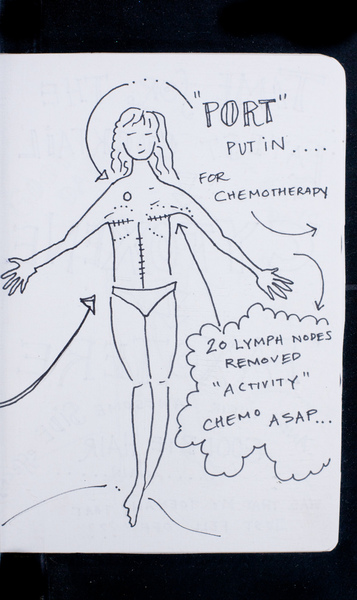 "PORT"
PUT IN....
FOR
CHEMOTHERAPY
20 LYMPH NODES
REMOVED
"ACTIVITY"
CHEMO ASAP...